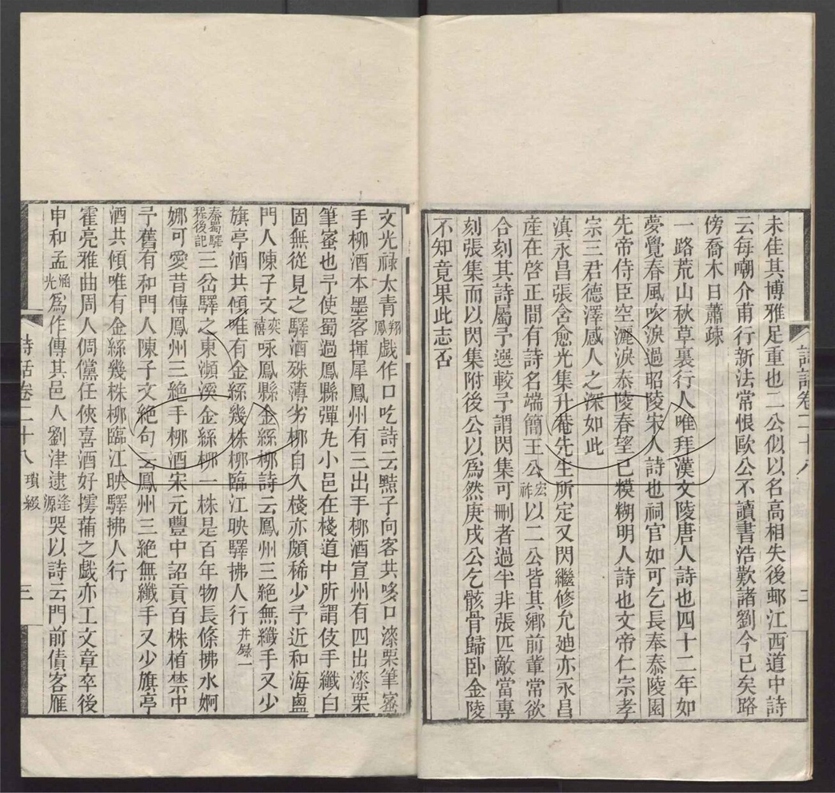 未佳其博雅足重也二公似以名高相失後郵江西道中詩
云每嘲介甫行新法常恨歐公不讀書浩歎諸劉今已矣路
傍喬木日蕭疎
一路荒山秋草裏行人唯拜漢文陵唐人詩也四十二年如
夢覺春風吹淚過昭陵宋人詩也祠官如可乞長奉泰陵園
先帝侍臣空灑淚泰陵春望已模糊明人詩也文帝仁宗孝
宗三君德澤感人之深如此
滇永昌張含愈光集升菴先生所定又閃繼修允廸亦永昌
產在啓正間有詩名端簡王公宏祚以二公皆其鄉前輩常欲
合刻其詩屬予選較予謂閃集可刪者過半非張匹敵當專
刻張集而以閃集附後公以爲然庚戌公乞骸骨歸卧金陵
不知竟果此志否
詩話卷二十八
三
文光祿太青翔鳳戲作口吃詩云黠子向客共哆口漆栗筆蜜
手柳酒本墨客揮犀鳳州有三出手柳酒宣州有四出漆栗
筆蜜也予使蜀過鳳縣彈丸小邑在棧道中所謂伎手纖白
固無從見之驛酒殊薄劣柳自入棧亦頗稀少予近和海鹽
門人陳子文奕禧咏鳳縣金絲柳詩云鳳州三絶無纖手又少
旗亭酒共傾唯有金絲幾株柳臨江映驛拂人行并錄一
秦蜀驛程後記三岔驛之東瀕溪金絲柳一株是百年物長條拂水婀
娜可愛昔傳鳳州三絶手柳酒宋元豐中詔貢百株植禁中
予舊有和門人陳子文絶句云鳳州三絶無纖手又少旗亭
酒共傾唯有金絲幾株柳臨江映驛拂人行
霍亮雅曲周人倜儻任俠喜酒好摴蒱之戲亦工文章卒後
申和孟涵光爲作傳其邑人劉津逮逢源哭以詩云門前債客雁
詩話卷二十八 瑣綴
三